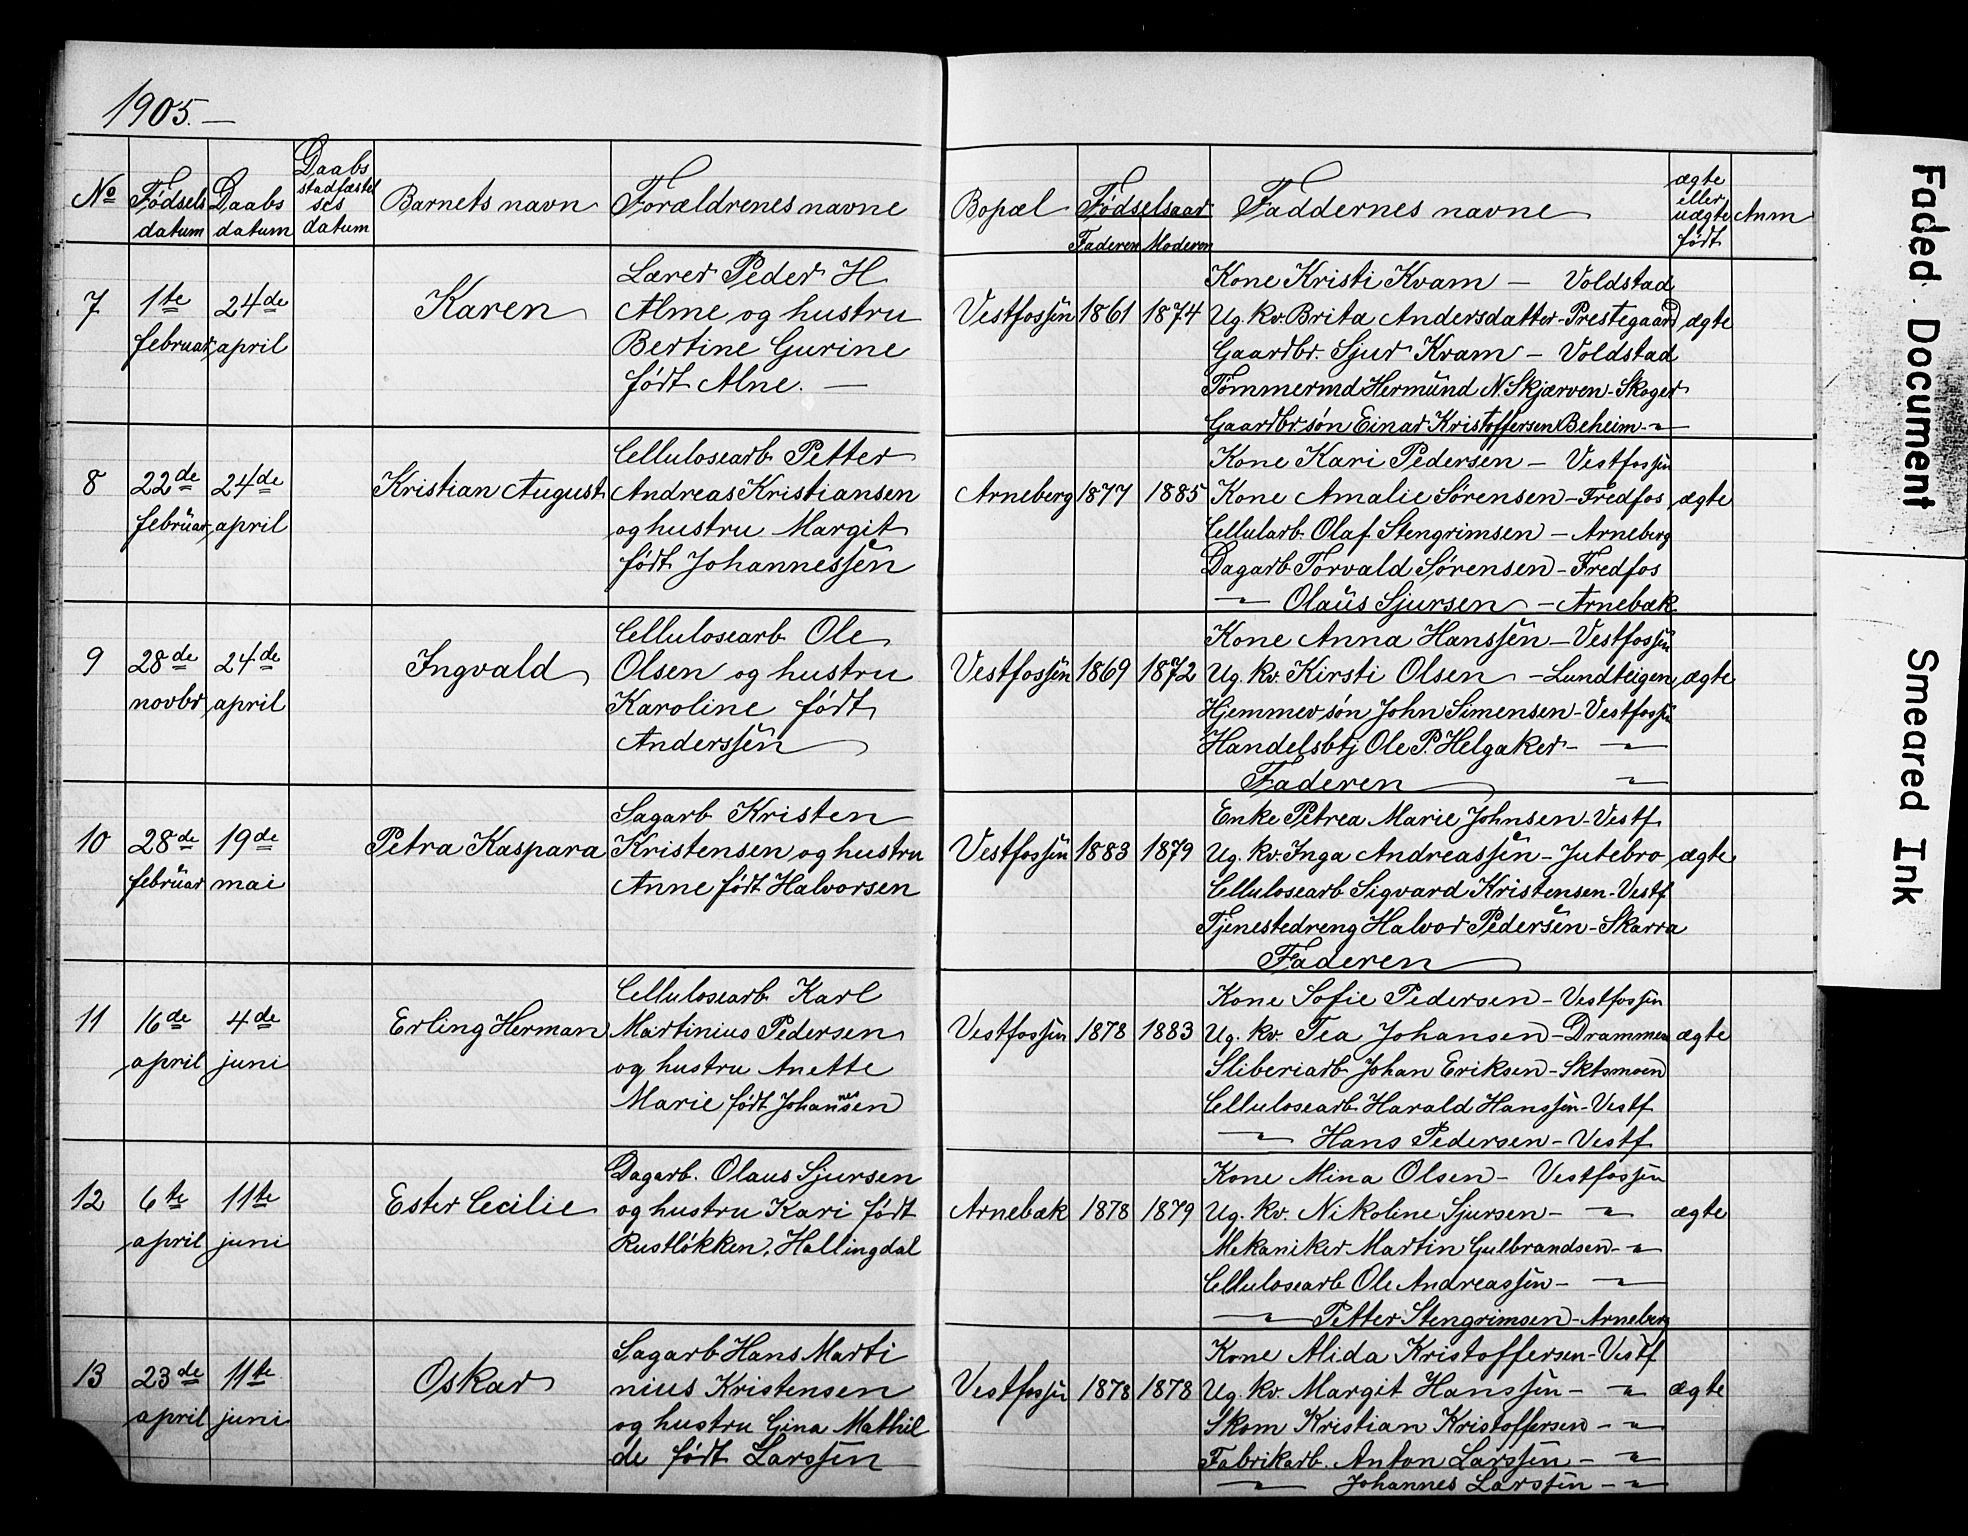 1905.—
No
Fødsels datum
Daabs datum
Daabs stadfæstelses datum
Barnets navn
Forældrenes navne
Bopæl
Fødselsaar
Faderen
Moderen
Faddernes navne
ægte eller uægte født
Anm
7
1te
februar
24de
april
Karen
Lærer Peder H
Alme og hustru
Bertine Gurine
født Alne. —
Vestfossen
1861
1874
Kone Kristi Kvam — Voldstad
Ug. kv. Brita Andersdatter - Prestegaard
Gaardbr. Sjur Kvam — Voldstad
Tømmermd Hermund N. Skjærven - Skoger
Gaardbr.søn Einar Kristoffersen Beheim - "
ægte
8
22de
februar
24de
april
Kristian August
Cellulosearb. Petter
Andreas Kristiansen
og hustru Margit
født Johannessen
Arneberg
1877
1885
Kone Kari Pedersen — Vestfossen
Kone Amalie Sørensen — Fredfos
Cellularb. Olaf Stengrimsen — Arneberg
Dagarb. Torvald Sørensen — Fredfos
— " — Olaus Sjursen — Arnebæk
ægte
9
28de
novbr
24de
april
Ingvald
Cellulosearb. Ole
Olsen og hustru
Karoline født
Anderssen
Vestfossen
1869
1872
Kone Anna Hanssen — Vestfossen
Ug. kv. Kirsti Olsen — Lundteigen
Hjemmev søn John Simensen - Vestfossen
Handelsbtj Ole P. Helgaker - — " —
Faderen — " —
ægte
10
28de
februar
19de
mai
Petra Kaspara
Sagarb. Kristen
Kristensen og hustru
Anne født Halvorsen
Vestfossen
1883
1879
Enke Petrea Marie Johnsen - Vestf
Ug. kv. Inga Andreassen - Jutebro
Cellulosearb Sigvard Kristensen - Vestf
Tjenestedreng Halvor Pedersen - Skarra
Faderen
ægte
11
16de
april
4de
juni
Erling Herman
Cellulosearb. Karl
Martinius Pedersen
og hustru Anette
Marie født Johannessen
Vestfossen
1878
1883
Kone Sofie Pedersen - Vestfossen
Ug. kv. Tea Johansen - Drammen
Sliberiarb. Johan Eriksen - Sktsmoen
Cellulosearb. Harald Hanssen - Vestf
— " — Hans Pedersen - Vestf
ægte
12
6te
april
11te
juni
Ester Cecilie
Dagarb. Olaus Sjursen
og hustru Kari født
Rustløkken, Hallingdal
Arnebæk
1878
1879
Kone Mina Olsen - Vestfossen
Ug. kv. Nikoline Sjursen - — " —
Mekaniker Martin Gulbrandsen - "
Cellulosearb Ole Andreassen - — " —
— " — Petter Stengrimsen - Arneberg
ægte
13
23de
april
11te
juni
Oskar
Sagarb Hans Marti
nius Kristensen
og hustru Gina Mathil
de født Larssen
Vestfossen
1878
1878
Kone Alida Kristoffersen - Vestf
Ug. kv. Margit Hanssen - "
Skom Kristian Kristoffersen - "
Fabrikarb. Anton Larssen - "
— " — Johannes Larssen - "
ægte
Faded Document
Smeared Ink